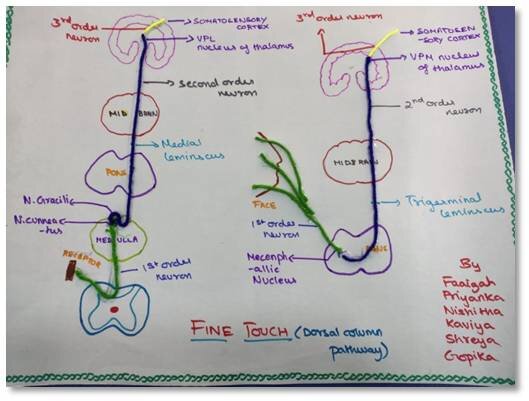 3rd order
neuron
SOMATOSENSORY
CORTEX
VPL
nucleus of thalamus
second order
neuron
MID BRAIN
Medial
lemniscus
PONS
N. Gracilis
N. cunnea-
-tus
MEDULLA
RECEPTOR
1st order
neuron
3rd order neuron
SOMATOSEN
-SORY CORTEX
VPM nucleus
of thalamus
2nd order
neuron
MIDBRAIN
FACE
1st order
neuron
Trigerminal
lemniscus
Mecenph-
-allic
Nucleus
PONS
FINE TOUCH (Dorsal column
pathway)
By
Faaigah
Priyanka
Nishitha
Kaviya
Shreya
Gopika